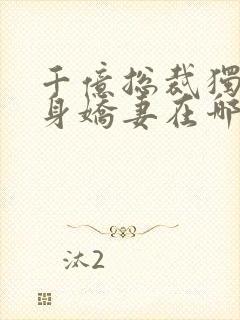 千億總裁獨
身嬌妻在哪
汰2